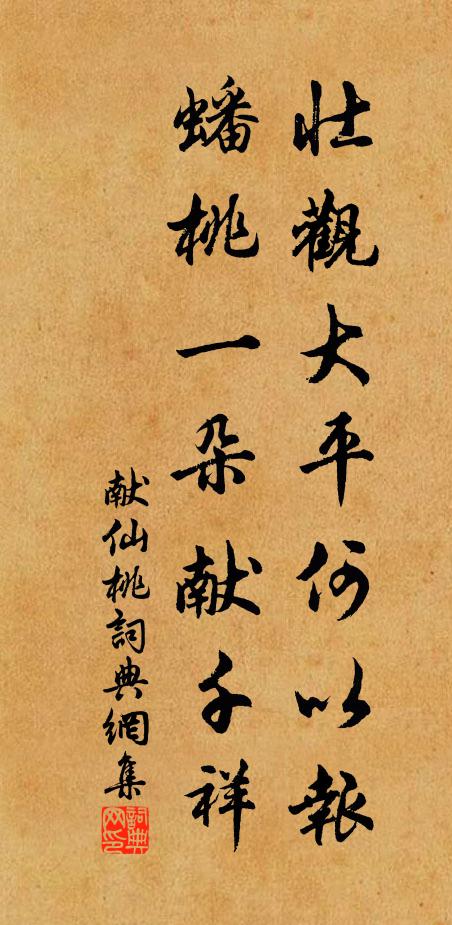 壮觀大平何以報
蟠桃一朵献千祥
献仙桃詞典網集
詞典网印